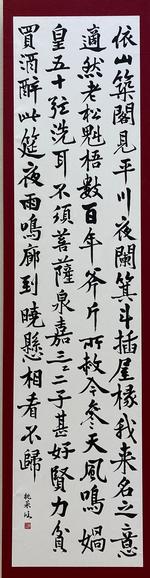 依山築閣見平川夜闌箕斗插屋椽我來名之意
適然老松魁梧數百年斧斤所赦今參天風鳴媧
皇五十弦洗耳不須菩薩泉嘉三二子甚好賢力貧
買酒醉此筵夜雨鳴廊到曉懸相看不歸